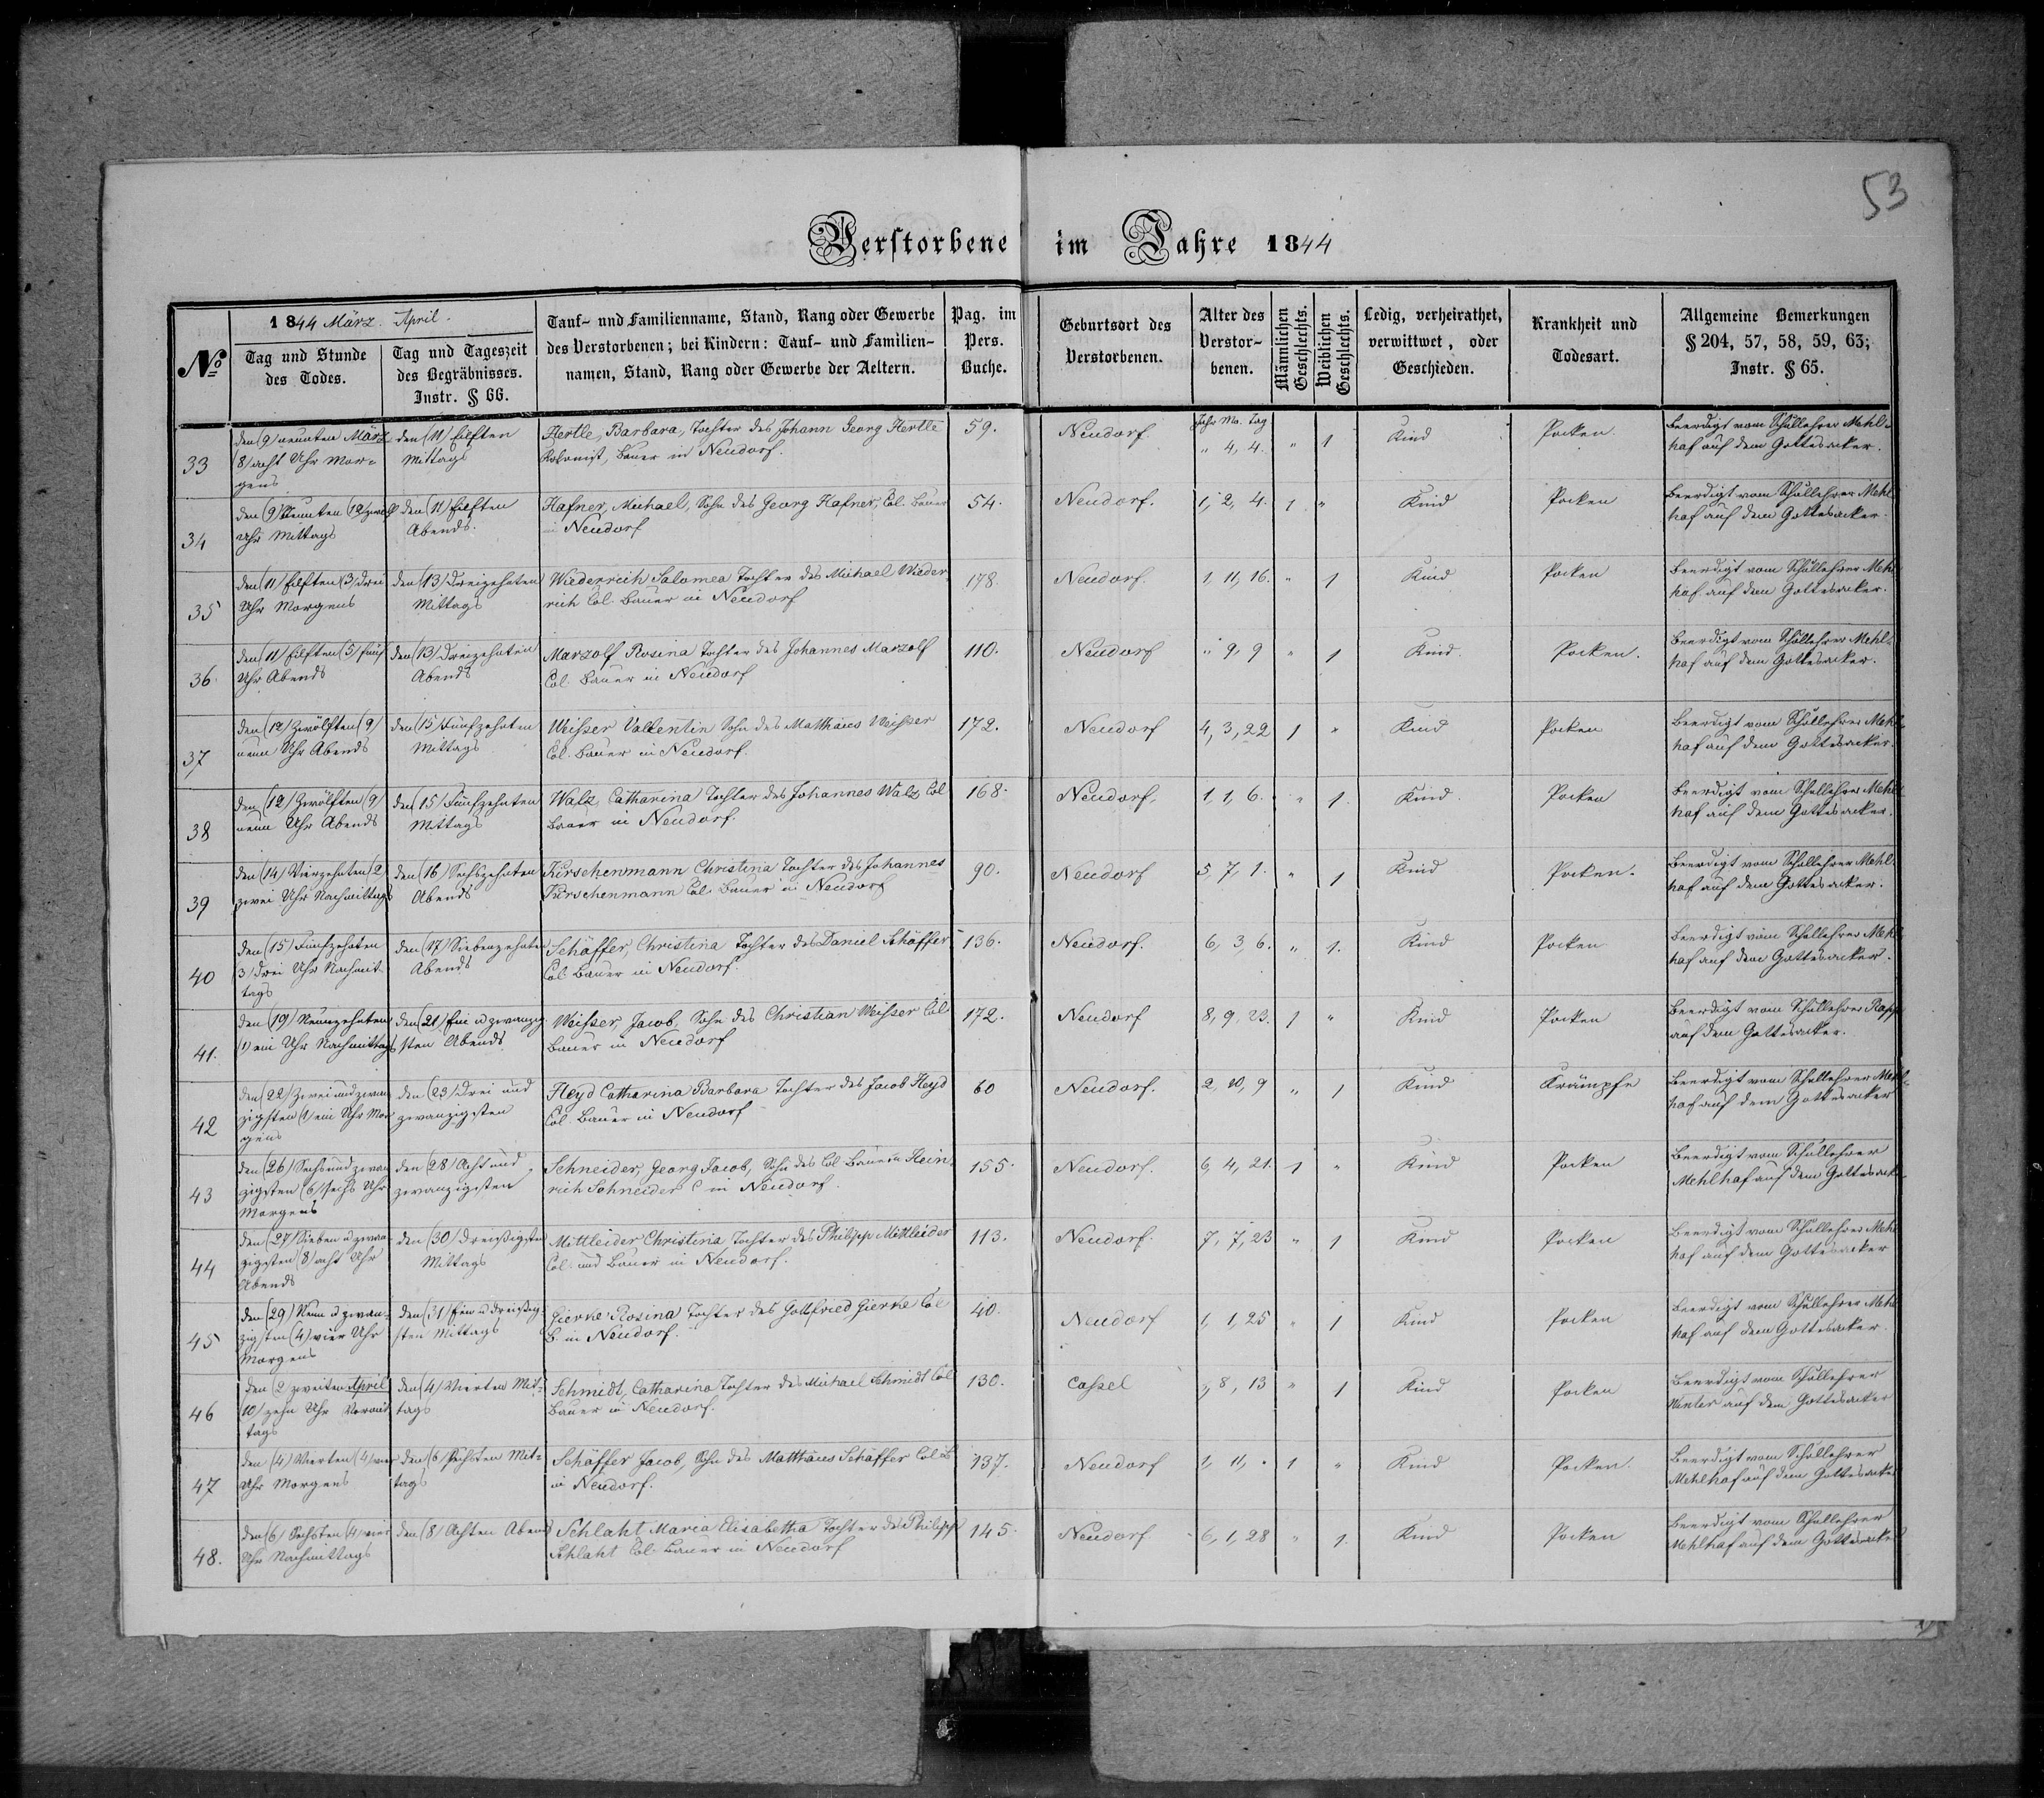 53
Verstorbene im Jahre 1844
No
1844 März. April.
Tag und Stunde des Todes.
Tag und Tageszeit des Begräbnisses. Instr. § 66.
Tauf- und Familienname, Stand, Rang oder Gewerbe des Verstorbenen; bei Kindern: Tauf- und Familiennamen, Stand, Rang oder Gewerbe der Aeltern.
Pag. im Pers. Buche.
Geburtsort des Verstorbenen.
Alter des Verstorbenen.
Männlichen Geschlechts.
Weiblichen Geschlechts.
Ledig, verheirathet, verwittwet, oder Geschieden.
Krankheit und Todesart.
Allgemeine Bemerkungen § 204, 57, 58, 59, 63; Instr. § 65.
33
den (9) neunten März
8) acht Uhr Mor-
gens
den (11) Eilften
Mittags
Hertle, Barbara, Tochter des Johann Georg Hertle
Kolonist, Bauer in Neudorf.
59.
Neudorf
Jahr Mo. Tag
" 4, 4.
" 1
Kind
Pocken.
Beerdigt vom Schullehrer Mehl-
haf auf dem Gottesacker.
34
den (9) Neunten (12) zwölf
Uhr Mittags
den (11) Eilften
Abends.
Hafner, Michael, Sohn des Georg Hafner, Col. Bauer
in Neudorf
54.
Neudorf.
1, 2, 4.
1 "
Kind
Pocken
Beerdigt vom Schullehrer Mehl
haf auf dem Gottesacker.
35
den (11) Eilften (3) drei
Uhr Morgens
den (13) Dreizehnten
Mittags
Wiederrich Salomea Tochter des Michael Wieder-
rich Col. Bauer in Neudorf
178.
Neudorf.
1, 11, 16.
" 1
Kind
Pocken
Beerdigt vom Schullehrer Mehl
haf auf dem Gottesacker.
36.
den (11) Eilften (5) fünf
Uhr Abends
den (13) Dreizehnten
Abends
Marzolf Rosina Tochter des Johannes Marzolf
Col. Bauer in Neudorf
110.
Neudorf
" 9, 9
" 1
Kind.
Pocken.
Beerdigt vom Schullehrer Mehl-
haf auf dem Gottesacker.
37
den (12) Zwölften (9)
neun Uhr Abends
den (15) Fünfzehnten
Mittags
Weisser Vallentin Sohn des Matthäus Weisser
Col. Bauer in Neudorf.
172.
Neudorf
4, 3, 22
1 "
Kind
Pocken
Beerdigt vom Schullehrer Mehl
haf auf dem Gottesacker.
38
den (12) Zwölften (9)
neun Uhr Abends
den (15) Fünfzehnten
Mittags
Walz Catharina Tochter des Johannes Walz Col
Bauer in Neudorf.
168.
Neudorf,
1, 1, 6.
" 1.
Kind.
Pocken
Beerdigt vom Schullehrer Mehl
haf auf dem Gottesacker.
39
den (14) Vierzehnten (2
zwei Uhr Nachmittags
den (16) Sechszehnten
Abends
Kurschenmann Christina Tochter des Johannes
Kurschenmann Col. Bauer in Neudorf
90.
Neudorf
5, 7, 1.
" 1
Kind
Pocken.
Beerdigt vom Schullehrer Mehl-
haf auf dem Gottesacker.
40
den (15) Fünfzehnten
3) drei Uhr Nachmit-
tags
den (17) Siebenzehnten
Abends
Schäffer, Christina Tochter des Daniel Schäffer
Col. Bauer in Neudorf.
136.
Neudorf.
6, 3, 6.
" 1.
Kind
Pocken
Beerdigt vom Schullehrer Mehl
haf auf dem Gottesacker.
41.
den (19) Neunzehnten
(1) ein Uhr Nachmittags
den (21) Ein u zwanzig-
sten Abends
Weisser, Jacob, Sohn des Christian Weisser Col
Bauer in Neudorf
172.
Neudorf
8, 9, 23.
1 "
Kind
Pocken
Beerdigt vom Schullehrer Rapp
auf dem Gottesacker.
42
den (22) Zwei und zwan-
zigsten (1) ein Uhr Mor-
gens
den (23) Drei und
zwanzigsten
Heyd Catharina Barbara Tochter des Jacob Heyd
Col. Bauer in Neudorf
60
Neudorf.
2, 10, 9
" 1
Kind
Krämpfe
Beerdigt vom Schullehrer Mehl-
haf auf dem Gottesacker
43
den (26) Sechsundzwan-
zigsten (6) sechs Uhr
Morgens
den (28) Acht und
zwanzigsten
Schneider, Georg Jacob, Sohn des Col Bauern Hein-
rich Schneider in Neudorf.
155.
Neudorf.
6, 4, 21.
1 "
Kind
Pocken
Beerdigt vom Schullehrer
Mehlhaf auf dem Gottesack-
44
den (27) Sieben u zwan-
zigsten (8) acht Uhr
Abends
den (30) Dreißigsten
Mittags
Mittleider Christina Tochter des Philipp Mittleider
Col. und Bauer in Neudorf.
113.
Neudorf.
7, 7, 23
" 1
Kind
Pocken
Beerdigt vom Schullehrer Mehl
haf auf dem Gottesacker
45
den (29) Neun u zwan-
zigsten (4) vier Uhr
Morgens
den (31) Ein u dreißig-
sten Mittags
Gierke Rosina Tochter des Gottfried Gierke Col
B. in Neudorf.
40.
Neudorf
1, 1, 25
" 1
Kind
Pocken
Beerdigt vom Schullehrer Mehl
haf auf dem Gottesacker.
46
den 2) zweiten April
10) zehn Uhr Vormit
tags
den (4) Vierten Mit-
tags
Schmidt, Catharina Tochter des Michael Schmidt Col
Bauer in Neudorf.
130.
Cassel
, 8, 13
" 1
Kind
Pocken
Beerdigt vom Schullehrer
Winter auf dem Gottesacker
47
den (4) Vierten (4) vier
Uhr Morgens
den (6) Sechsten Mit-
tags
Schäffer Jacob, Sohn des Matthäus Schäffer Col. B
in Neudorf.
137.
Neudorf
1, 11, .
1 "
Kind
Pocken.
Beerdigt vom Schullehrer
Mehlhaf auf dem Gottesacker
48.
den (6) Sechsten (4) vier
Uhr Nachmittags
den (8) Achten Abend
Schlaht Maria Elisabetha Tochter des Philipp
Schlaht Col. Bauer in Neudorf
145.
Neudorf
6, 1, 28
" 1.
Kind
Pocken
Beerdigt vom Schullehrer
Mehlhaf auf dem Gottesacker